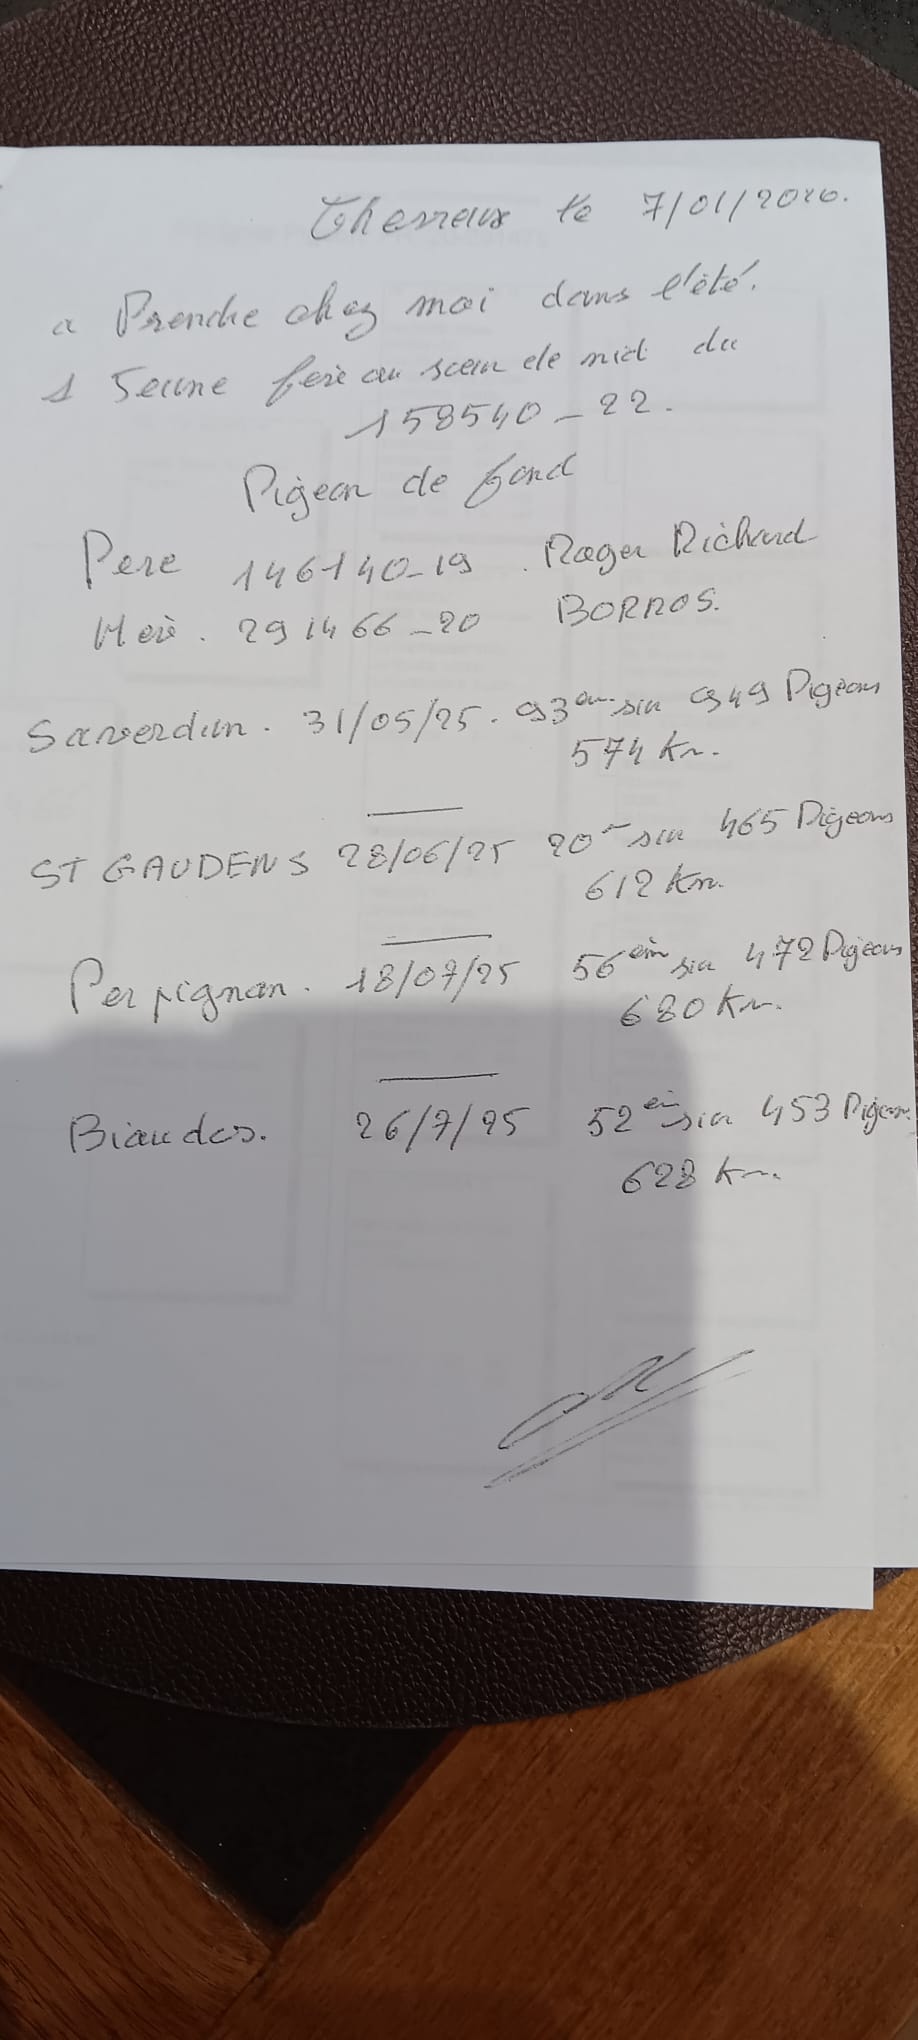 le 7/01/2026.
a Prendre chez moi dans l'été.
1 Jeune frère ou soeur de nid du
158540-22.
Pigeon de fond
Pere 146140-19. Roger Richard
Merè. 291466-20 BORROS.
Saverdun. 31/05/25. 93em sur 949 Pigeons
574 Km.
ST GAUDENS 28/06/25 20em sur 465 Pigeons
612 Km.
Perpignan. 18/07/25 56em sur 472 Pigeons
680 Km.
Biaudos. 26/7/25 52em sur 453 Pigeons
628 Km.